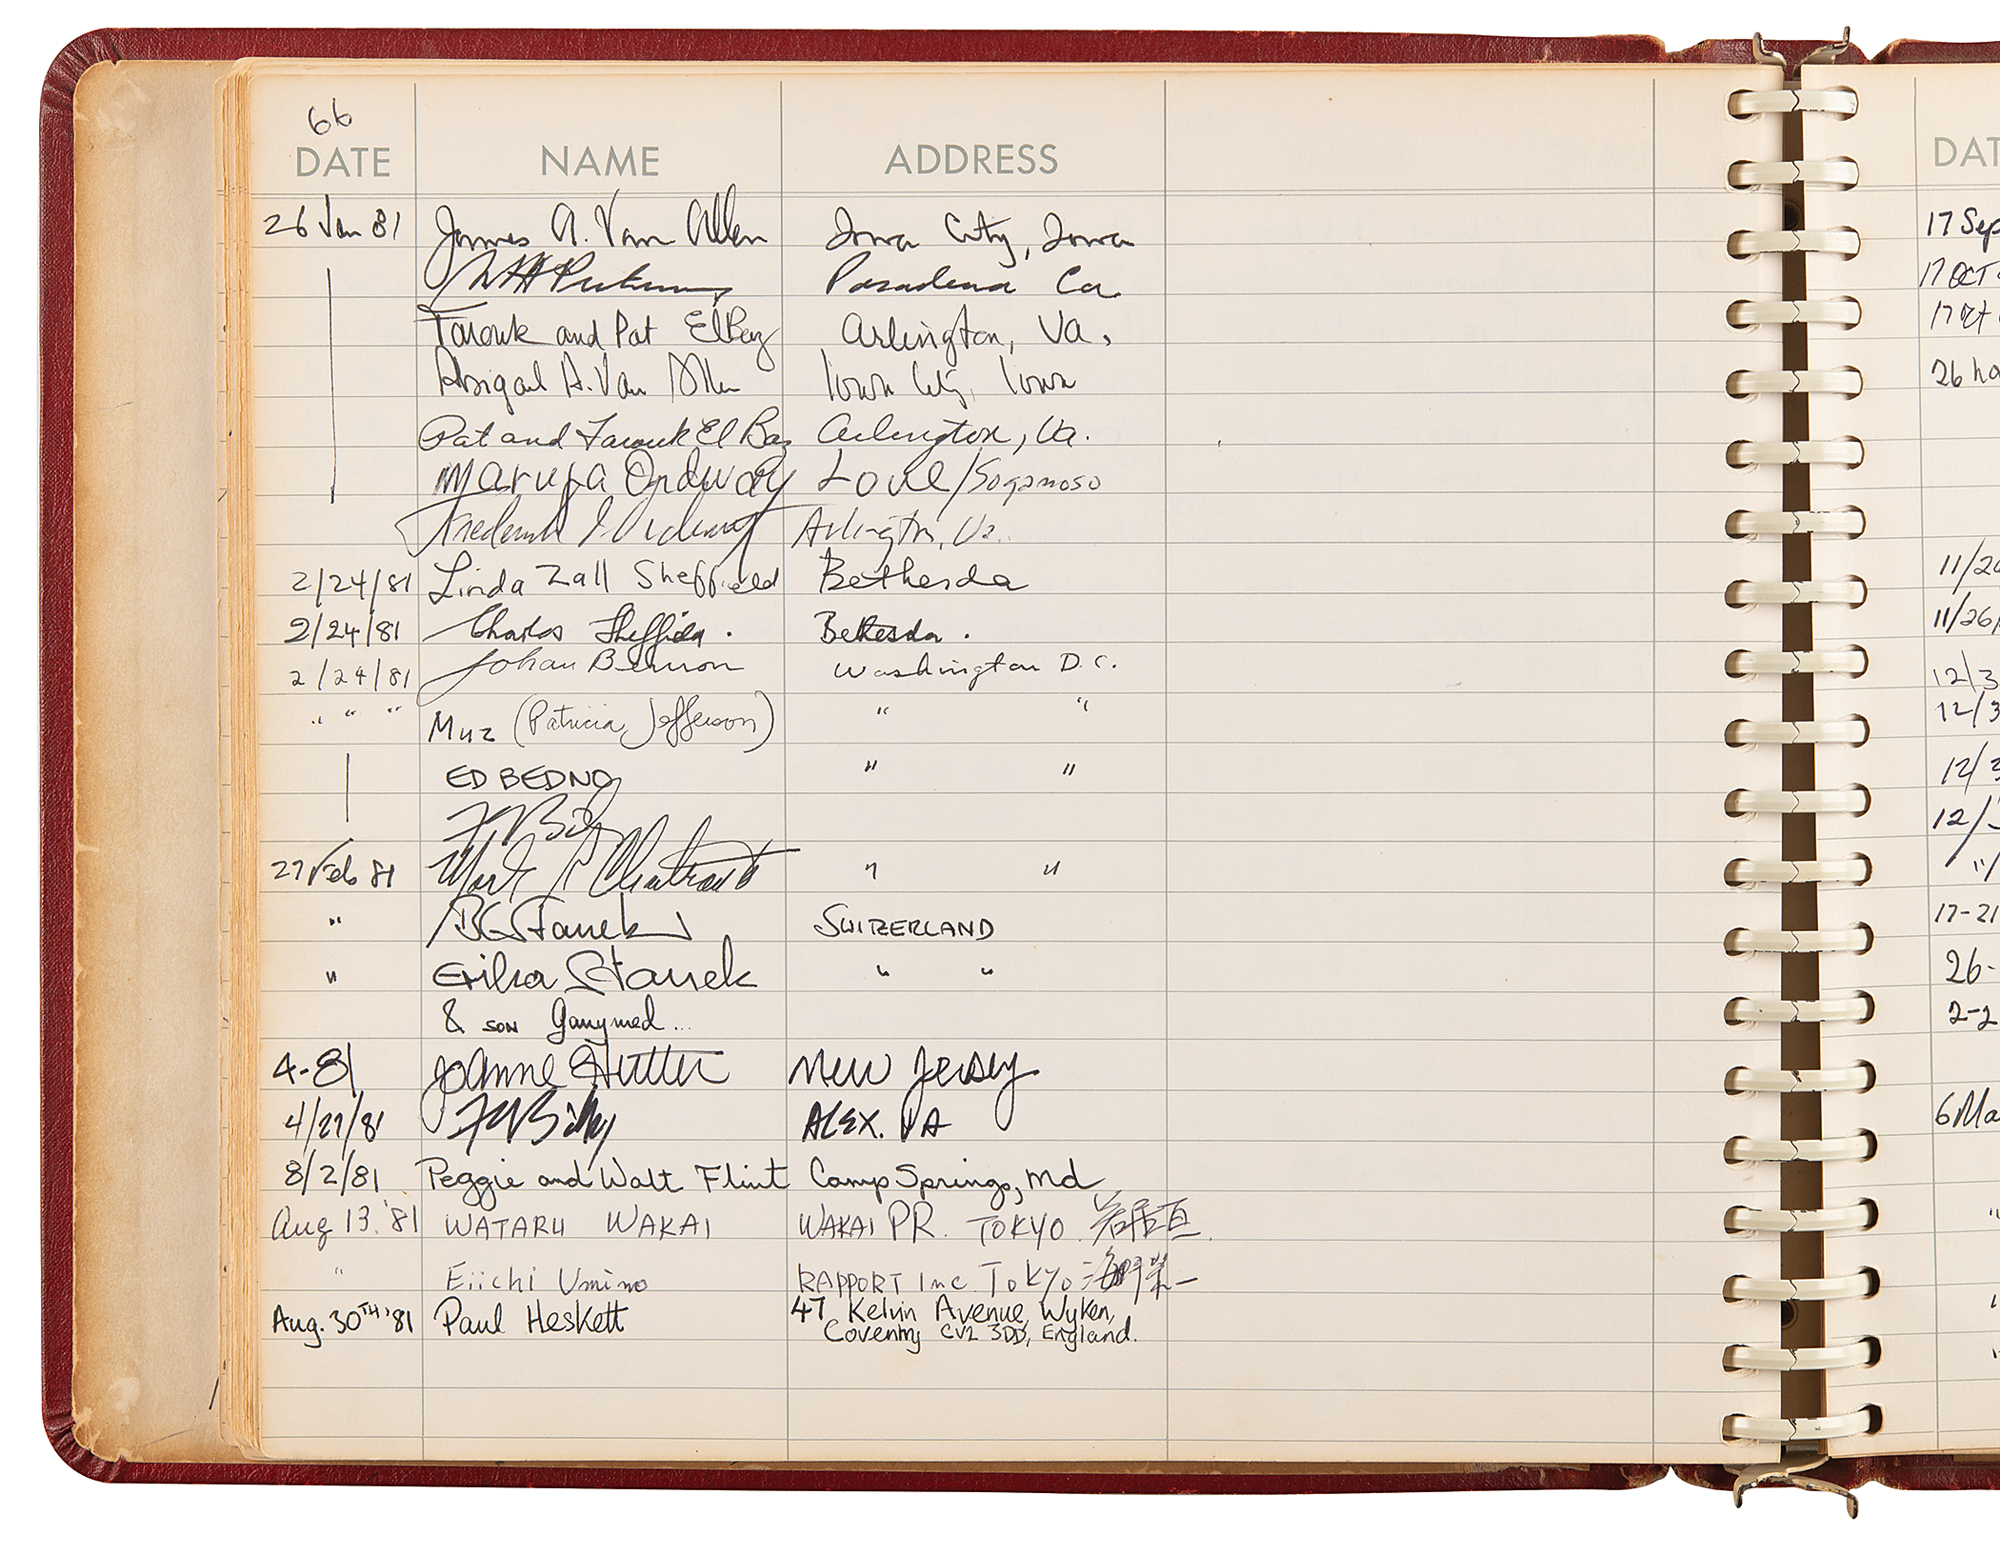 66
DATE NAME ADDRESS
26 Jan 81 James A. Van Allen Iowa City, Iowa
WH Pickering Pasadena Ca.
Farouk and Pat El Baz Arlington, Va.
Abigail A. Van Allen Iowa City, Iowa
Pat and Farouk El Baz Arlington, Va.
Maruja Ordway Love/Sogamoso
Frederick I Ordway Arlington, Va.
2/24/81 Linda Zall Sheffield Bethesda
2/24/81 Charles Sheffield. Bethesda.
2/24/81 Johan Benson Washington D.C.
" " " Muz (Patricia Jefferson) " "
ED BEDNO " "
27 Feb 81 Mark R Chartrand " "
" B Stanek SWIZERLAND
" Erika Stanek " "
& SON Ganymed...
4-81 Joanne Hutter New Jersey
4/27/81 ALEX. VA
8/2/81 Peggie and Walt Flint Camp Springs, Md
Aug 13. '81 WATARU WAKAI WAKAI PR. TOKYO.
" Eiichi Umino RAPPORT Inc. TOKYO
Aug. 30TH '81 Paul Heskett 47 Kelvin Avenue, Wyken,
Coventry CV2 3DD, England.
DAT
17 Sep
17 OCT
17 Oct
11/26/
12/3
12/3
12/3
12/
17-21
26-
2-2
6 Ma